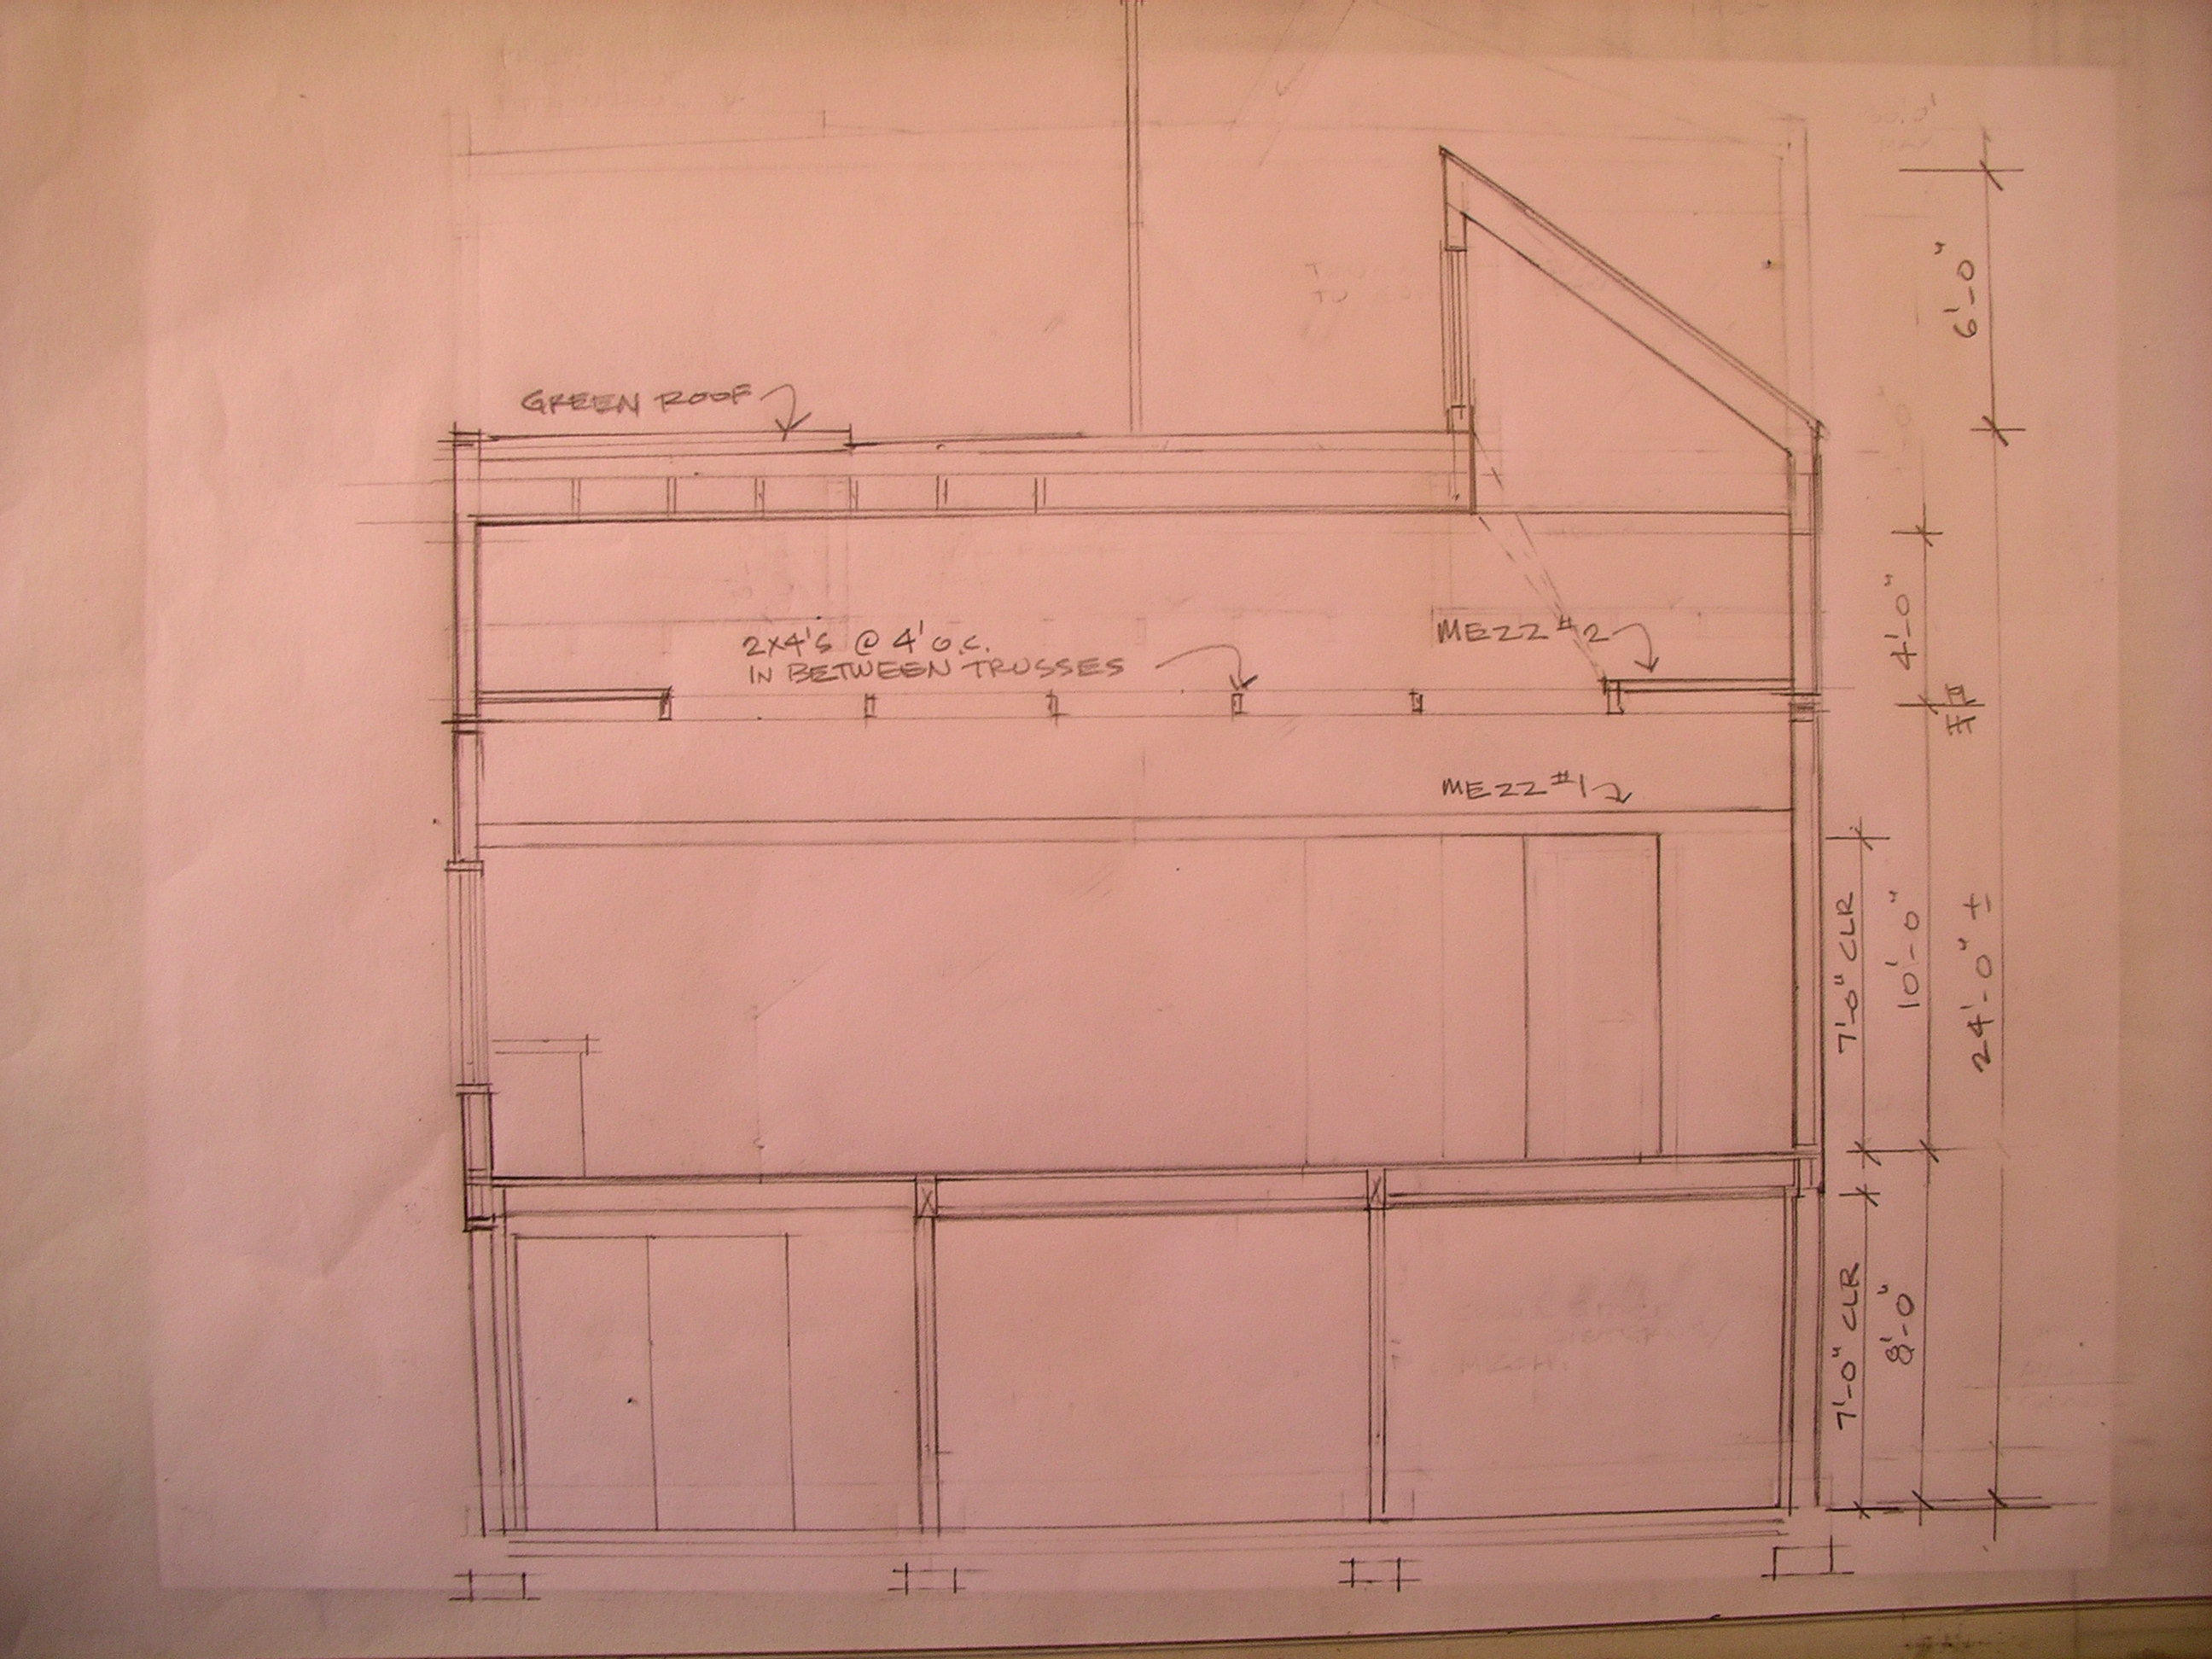 GREEN ROOF
6'-0"
2x4's @ 4' o.c.
IN BETWEEN TRUSSES
MEZZ #2
4'-0"
MEZZ #1
7'-0" CLR
10'-0"
24'-0" ±
7'-0" CLR
8'-0"